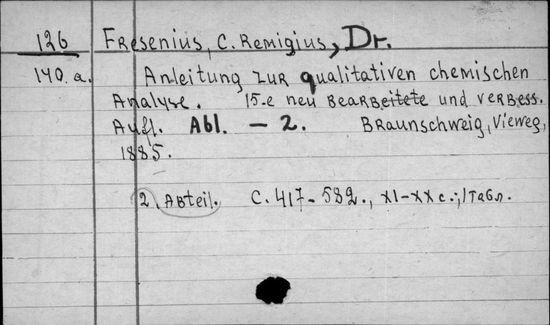 126 Fresenius, C. Remigius, Dr.
140.a. Anleitung zur qualitativen chemischen
Analyse. 15-e neu bearbeitete und verbess.
Aufl. Abl. — 2. Braunschweig, Vieweg,
1885.
2. Abteil. С. 417-582., XI-XX с.; 1 табл.